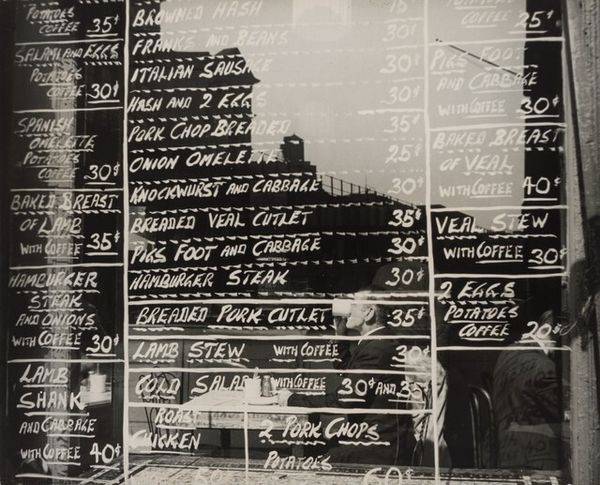 POTATOES
COFFEE 35¢
SALAMI AND EGGS
POTATOES
COFFEE 30¢
SPANISH
OMELETTE
POTATOES
COFFEE 30¢
BAKED BREAST
OF LAMB
WITH COFFEE 35¢
HAMBURGER
STEAK
AND ONIONS
WITH COFFEE 30¢
LAMB
SHANK
AND CABBAGE
WITH COFFEE 40¢
BROWNED HASH
FRANKS AND BEANS 30¢
ITALIAN SAUSAGE 30¢
HASH AND 2 EGGS 30¢
PORK CHOP BREADED 35¢
ONION OMELETTE 25¢
KNOCKWURST AND CABBAGE 30¢
BREADED VEAL CUTLET 35¢
PIGS FOOT AND CABBAGE 30¢
HAMBURGER STEAK 30¢
BREADED PORK CUTLET 35¢
LAMB STEW WITH COFFEE 30¢
COLD SALAD WITH COFFEE 30¢ AND 35
ROAST
CHICKEN
2 PORK CHOPS
POTATOES
60¢
POTATOES
COFFEE 25¢
PIGS FOOT
AND CABBAGE
WITH COFFEE 30¢
BAKED BREAST
OF VEAL
WITH COFFEE 40¢
VEAL STEW
WITH COFFEE 30¢
2 EGGS
POTATOES
COFFEE 20¢